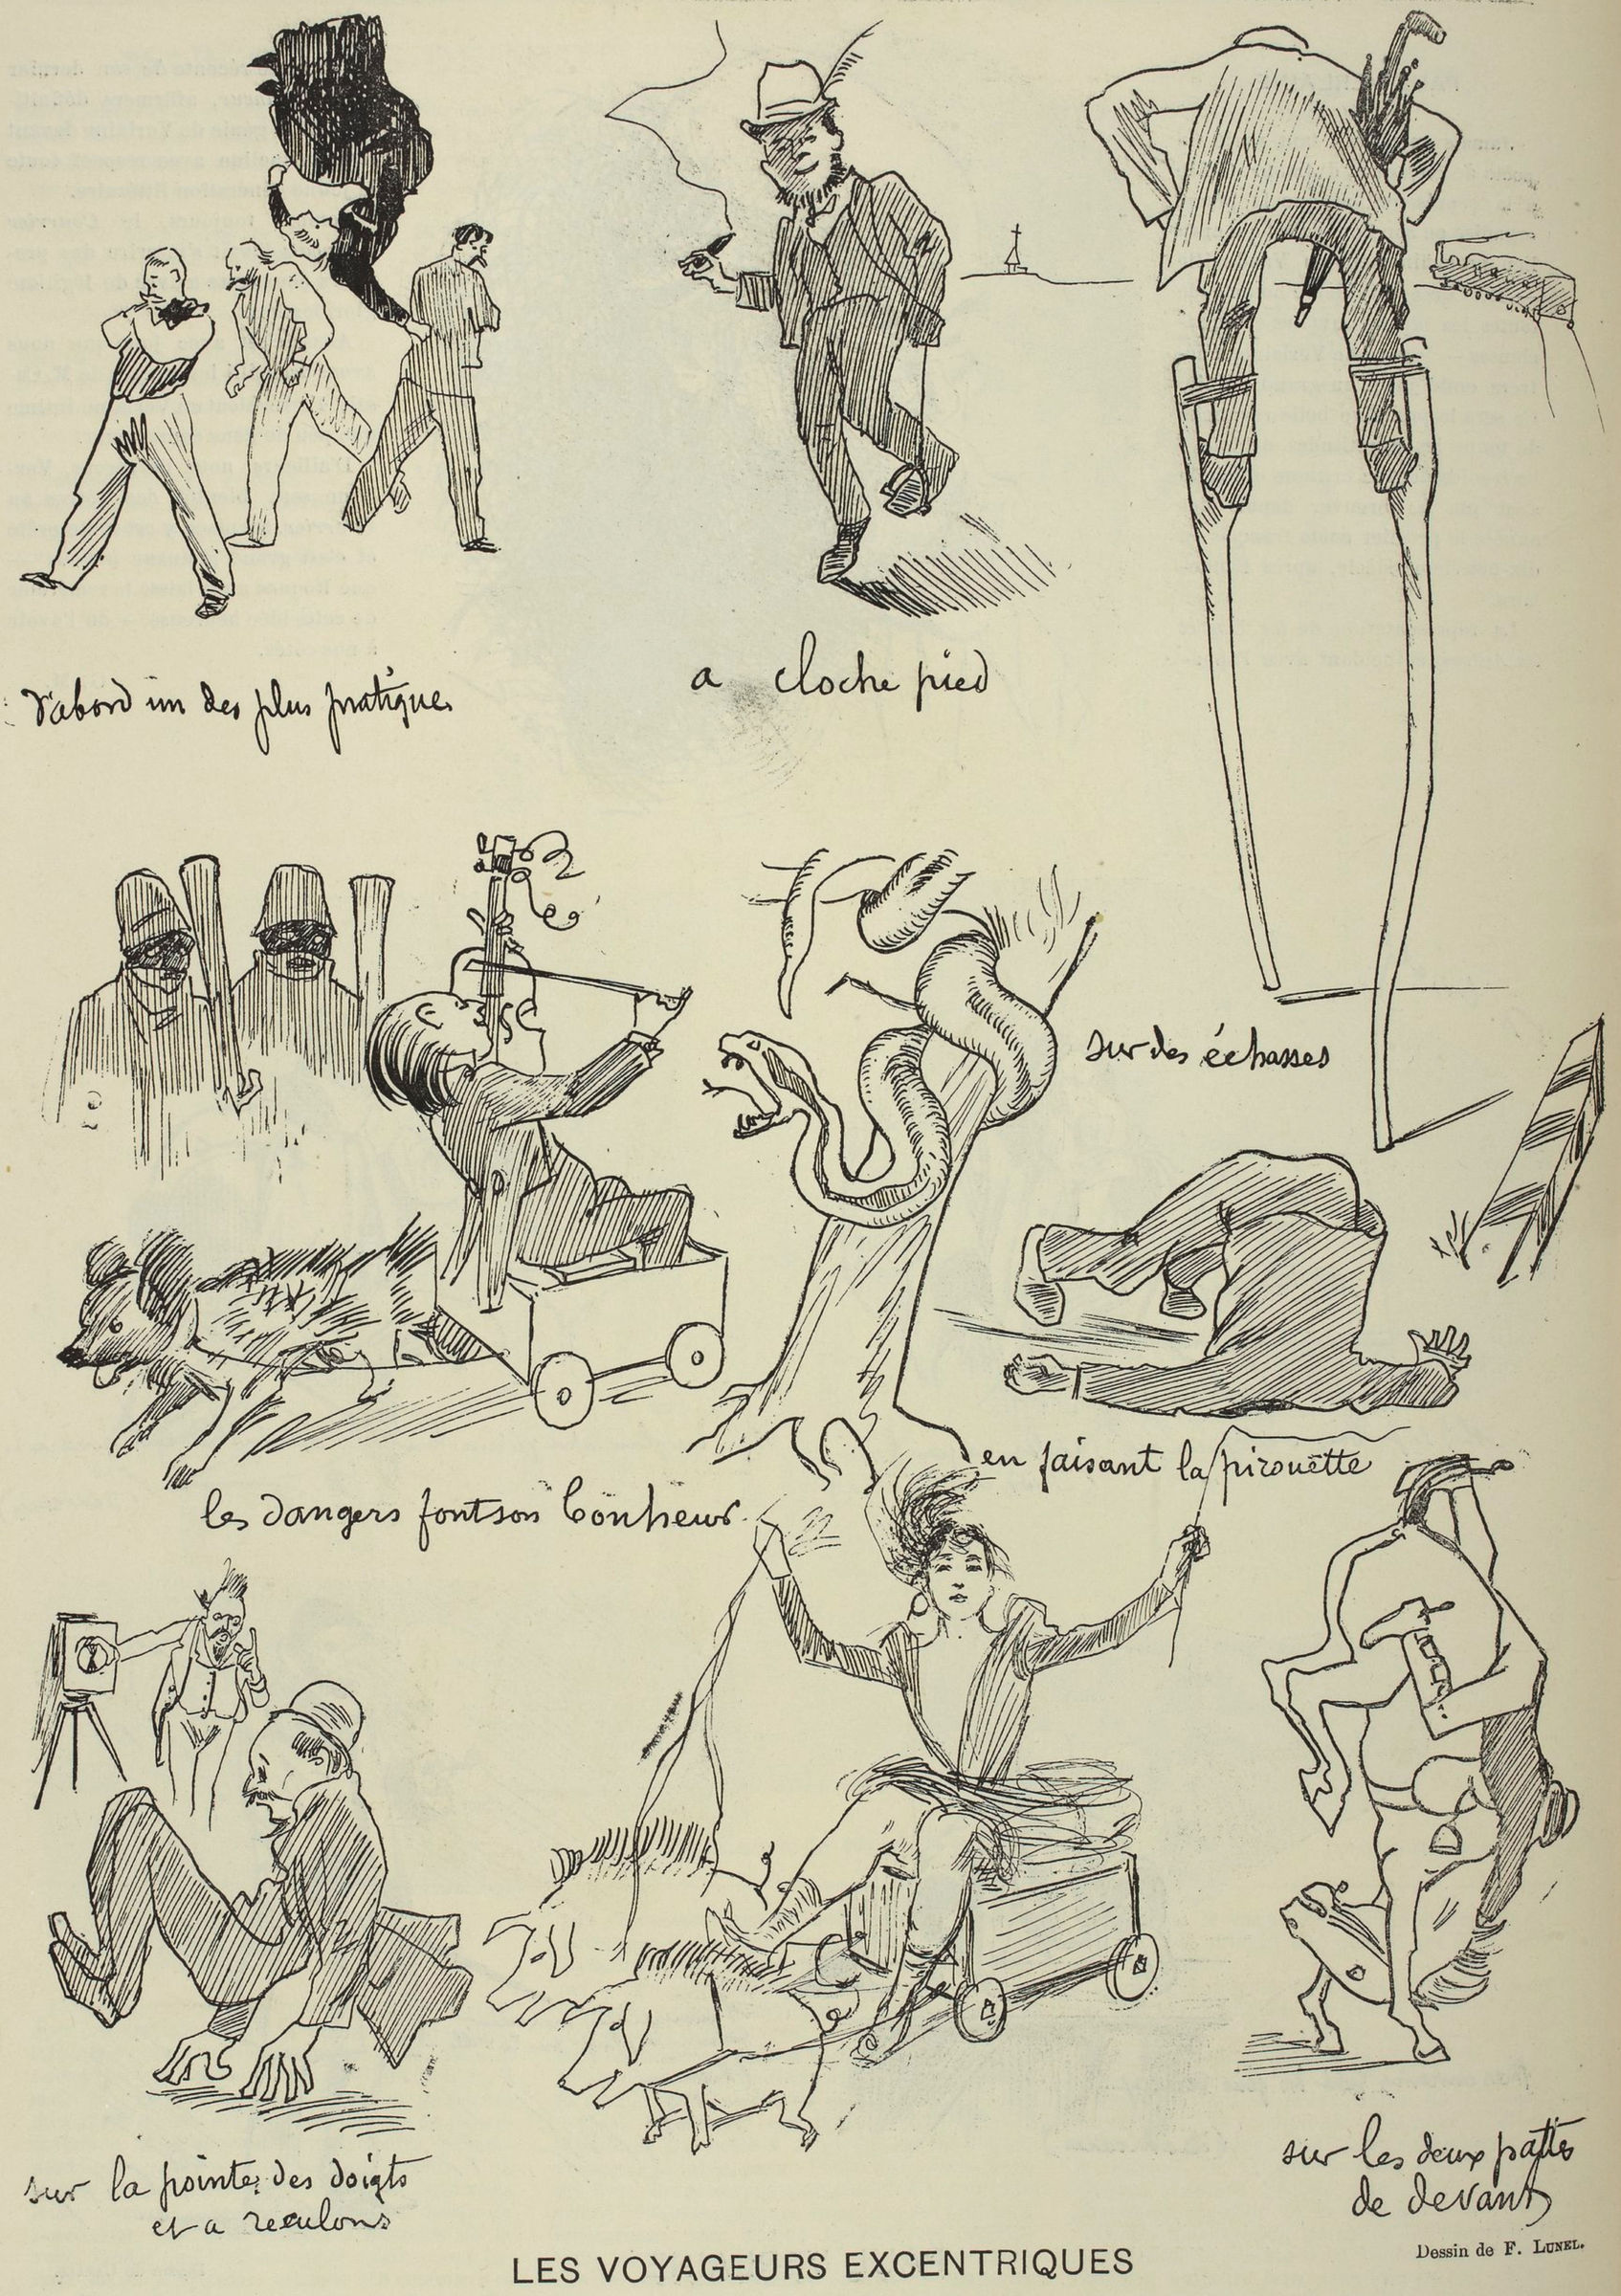 d'abord un des plus pratique
a cloche pied
sur des échasses
les dangers font son bonheur
en faisant la pirouette
sur la pointe des doigts
et a reculons
sur les deux pattes
de devant
Dessin de F. LUNEL.
LES VOYAGEURS EXCENTRIQUES